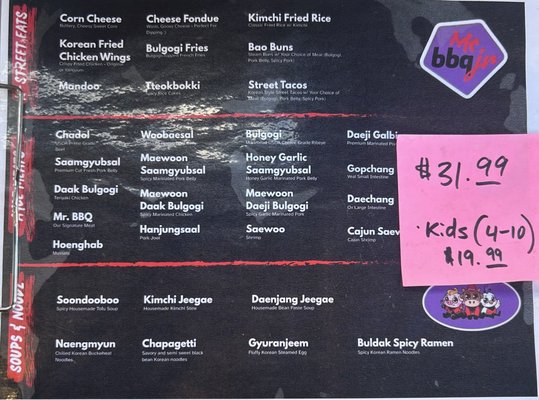 STREET EATS
Corn Cheese
Buttery, Cheesy Sweet Corn
Cheese Fondue
Warm, Gooey Cheese - Perfect For
Dipping :)
Kimchi Fried Rice
Classic Fried Rice w/ Kimchi
Korean Fried
Chicken Wings
Crispy Fried Chicken - Original
or Yangnyum
Bulgogi Fries
Bulgogi-topped French Fries
Bao Buns
Steam Buns w/ Your Choice of Meat (Bulgogi,
Pork Belly, Spicy Pork)
Mandoo
Tteokbokki
Spicy Rice Cakes
Street Tacos
Korean Style Street Tacos w/ Your Choice of
Meat (Bulgogi, Pork Belly, Spicy Pork)
Mr.
bbq jr
Chadol
Beef
Woobaesal
Bulgogi
Daeji Galbi
Premium Marinated Por
Saamgyubsal
Premium Cut Fresh Pork Belly
Maewoon
Saamgyubsal
Spicy Marinated Pork Belly
Honey Garlic
Saamgyubsal
Honey Garlic Marinated Pork Belly
Gopchang
Veal Small Intestine
Daak Bulgogi
Teriyaki Chicken
Maewoon
Daak Bulgogi
Spicy Marinated Chicken
Maewoon
Daeji Bulgogi
Spicy Garlic Marinated Pork
Daechang
Or Large Intestine
Mr. BBQ
Our Signature Meat
Hanjungsaal
Pork Jowl
Saewoo
Shrimp
Cajun Saew
Cajun Shrimp
Hoenghab
Mussels
$31.99
·Kids (4-10)
$19.99
SOUPS & NOODL
Soondooboo
Spicy Housemade Tofu Soup
Kimchi Jeegae
Housemade Kimchi Stew
Daenjang Jeegae
Housemade Bean Paste Soup
Naengmyun
Chilled Korean Buckwheat
Noodles
Chapagetti
Savory and semi sweet black
bean Korean noodles
Gyuranjeem
Fluffy Korean Steamed Egg
Buldak Spicy Ramen
Spicy Korean Ramen Noodles